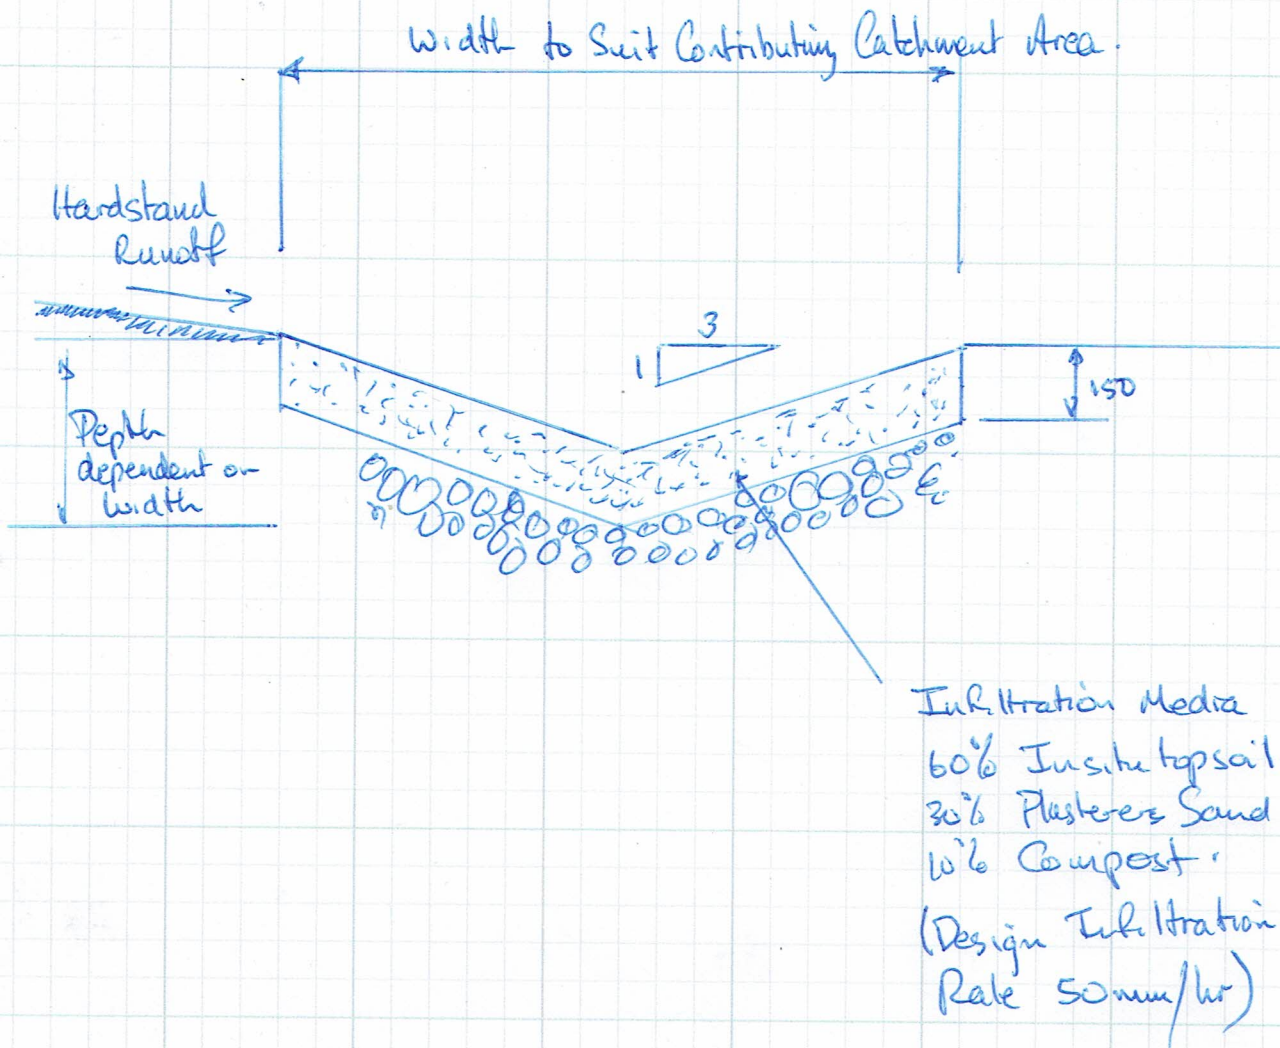 Width to Suit Contributing Catchment Area.
Hardstand
Runoff
3
1
150
Depth
dependent on
width
Infiltration Media
60% Insitu topsoil
30% Plasterers Sand
10% Compost.
(Design Infiltration
Rate 50mm/hr)